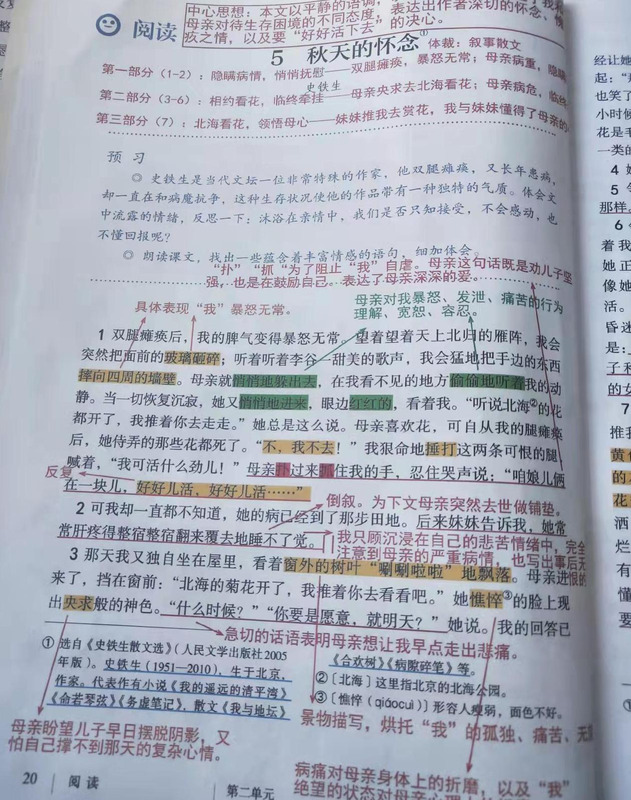 中心思想：本文以平静的语调，
表达出作者深切的怀念，
母亲对待生存困境的不同态度，
疚之情，以及要“好好活下去”的决心。
阅读
5 秋天的怀念①
体裁：叙事散文
第一部分（1-2）：隐瞒病情，悄悄抚慰——双腿瘫痪，暴怒无常；母亲病重，隐瞒
史铁生
第二部分（3-6）：相约看花，临终牵挂——母亲央求去北海看花；母亲病危，临终
第三部分（7）：北海看花，领悟母心——妹妹推我去赏花，我与妹妹懂得了母亲的
预习
◎ 史铁生是当代文坛一位非常特殊的作家，他双腿瘫痪，又长年患病，
却一直在和病魔抗争，这种生存状况使他的作品带有一种独特的气质。体会文
中流露的情绪，反思一下：沐浴在亲情中，我们是否只知接受，不会感动，也
不懂回报呢？
◎ 朗读课文，找出一些蕴含着丰富情感的语句，细加体会。
“扑”“抓”为了阻止“我”自虐。母亲这句话既是劝儿子坚
强，也是在鼓励自己。表达了母亲深深的爱。
具体表现“我”暴怒无常。
母亲对我暴怒、发泄、痛苦的行为
理解、宽恕、容忍。
1 双腿瘫痪后，我的脾气变得暴怒无常。望着望着天上北归的雁阵，我会
突然把面前的玻璃砸碎；听着听着李谷一甜美的歌声，我会猛地把手边的东西
摔向四周的墙壁。母亲就悄悄地躲出去，在我看不见的地方偷偷地听着我的动
静。当一切恢复沉寂，她又悄悄地进来，眼边红红的，看着我。“听说北海②的花
都开了，我推着你去走走。”她总是这么说。母亲喜欢花，可自从我的腿瘫痪
后，她侍弄的那些花都死了。“不，我不去！”我狠命地捶打这两条可恨的腿，
喊着，“我可活什么劲儿！”母亲扑过来抓住我的手，忍住哭声说：“咱娘儿俩
反复
在一块儿，好好儿活，好好儿活……”
倒叙。为下文母亲突然去世做铺垫。
2 可我却一直都不知道，她的病已经到了那步田地。后来妹妹告诉我，她常
常肝疼得整宿整宿翻来覆去地睡不了觉。
我只顾沉浸在自己的悲苦情绪中，完全
注意到母亲的严重病情，也写出事后无
3 那天我又独自坐在屋里，看着窗外的树叶“唰唰啦啦”地飘落。母亲进
悔恨的
来了，挡在窗前：“北海的菊花开了，我推着你去看看吧。”她憔悴③的脸上现
出央求般的神色。“什么时候？”“你要是愿意，就明天？”她说。我的回答已
急切的话语表明母亲想让我早点走出悲痛。
① 选自《史铁生散文选》（人民文学出版社2005
年版）。史铁生（1951—2010），生于北京，
作家。代表作有小说《我的遥远的清平湾》
《命若琴弦》《务虚笔记》，散文《我与地坛》
《合欢树》《病隙碎笔》等。
②〔北海〕这里指北京的北海公园。
③〔憔悴（qiáocuì）〕形容人瘦弱，面色不好。
景物描写，烘托“我”的孤独、痛苦、无
母亲盼望儿子早日摆脱阴影，又
怕自己撑不到那天的复杂心情。
病痛对母亲身体上的折磨，以及“我”
绝望的状态对母亲心理上
20 阅读
第二单元
经让她
起：“
也笑了
小时候
花是毛
一类的
4
5
那样。
6
着我
她正
像她
活。
昏迷
是：
子和
的女
7
推我
黄色
的
花
洒
烂
有
懂
要